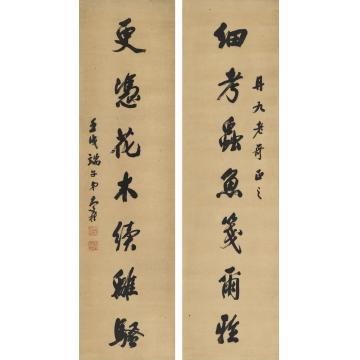 細考蟲魚箋爾雅
丹九老哥正之
更憑花木續離騷
壬戌端午弟